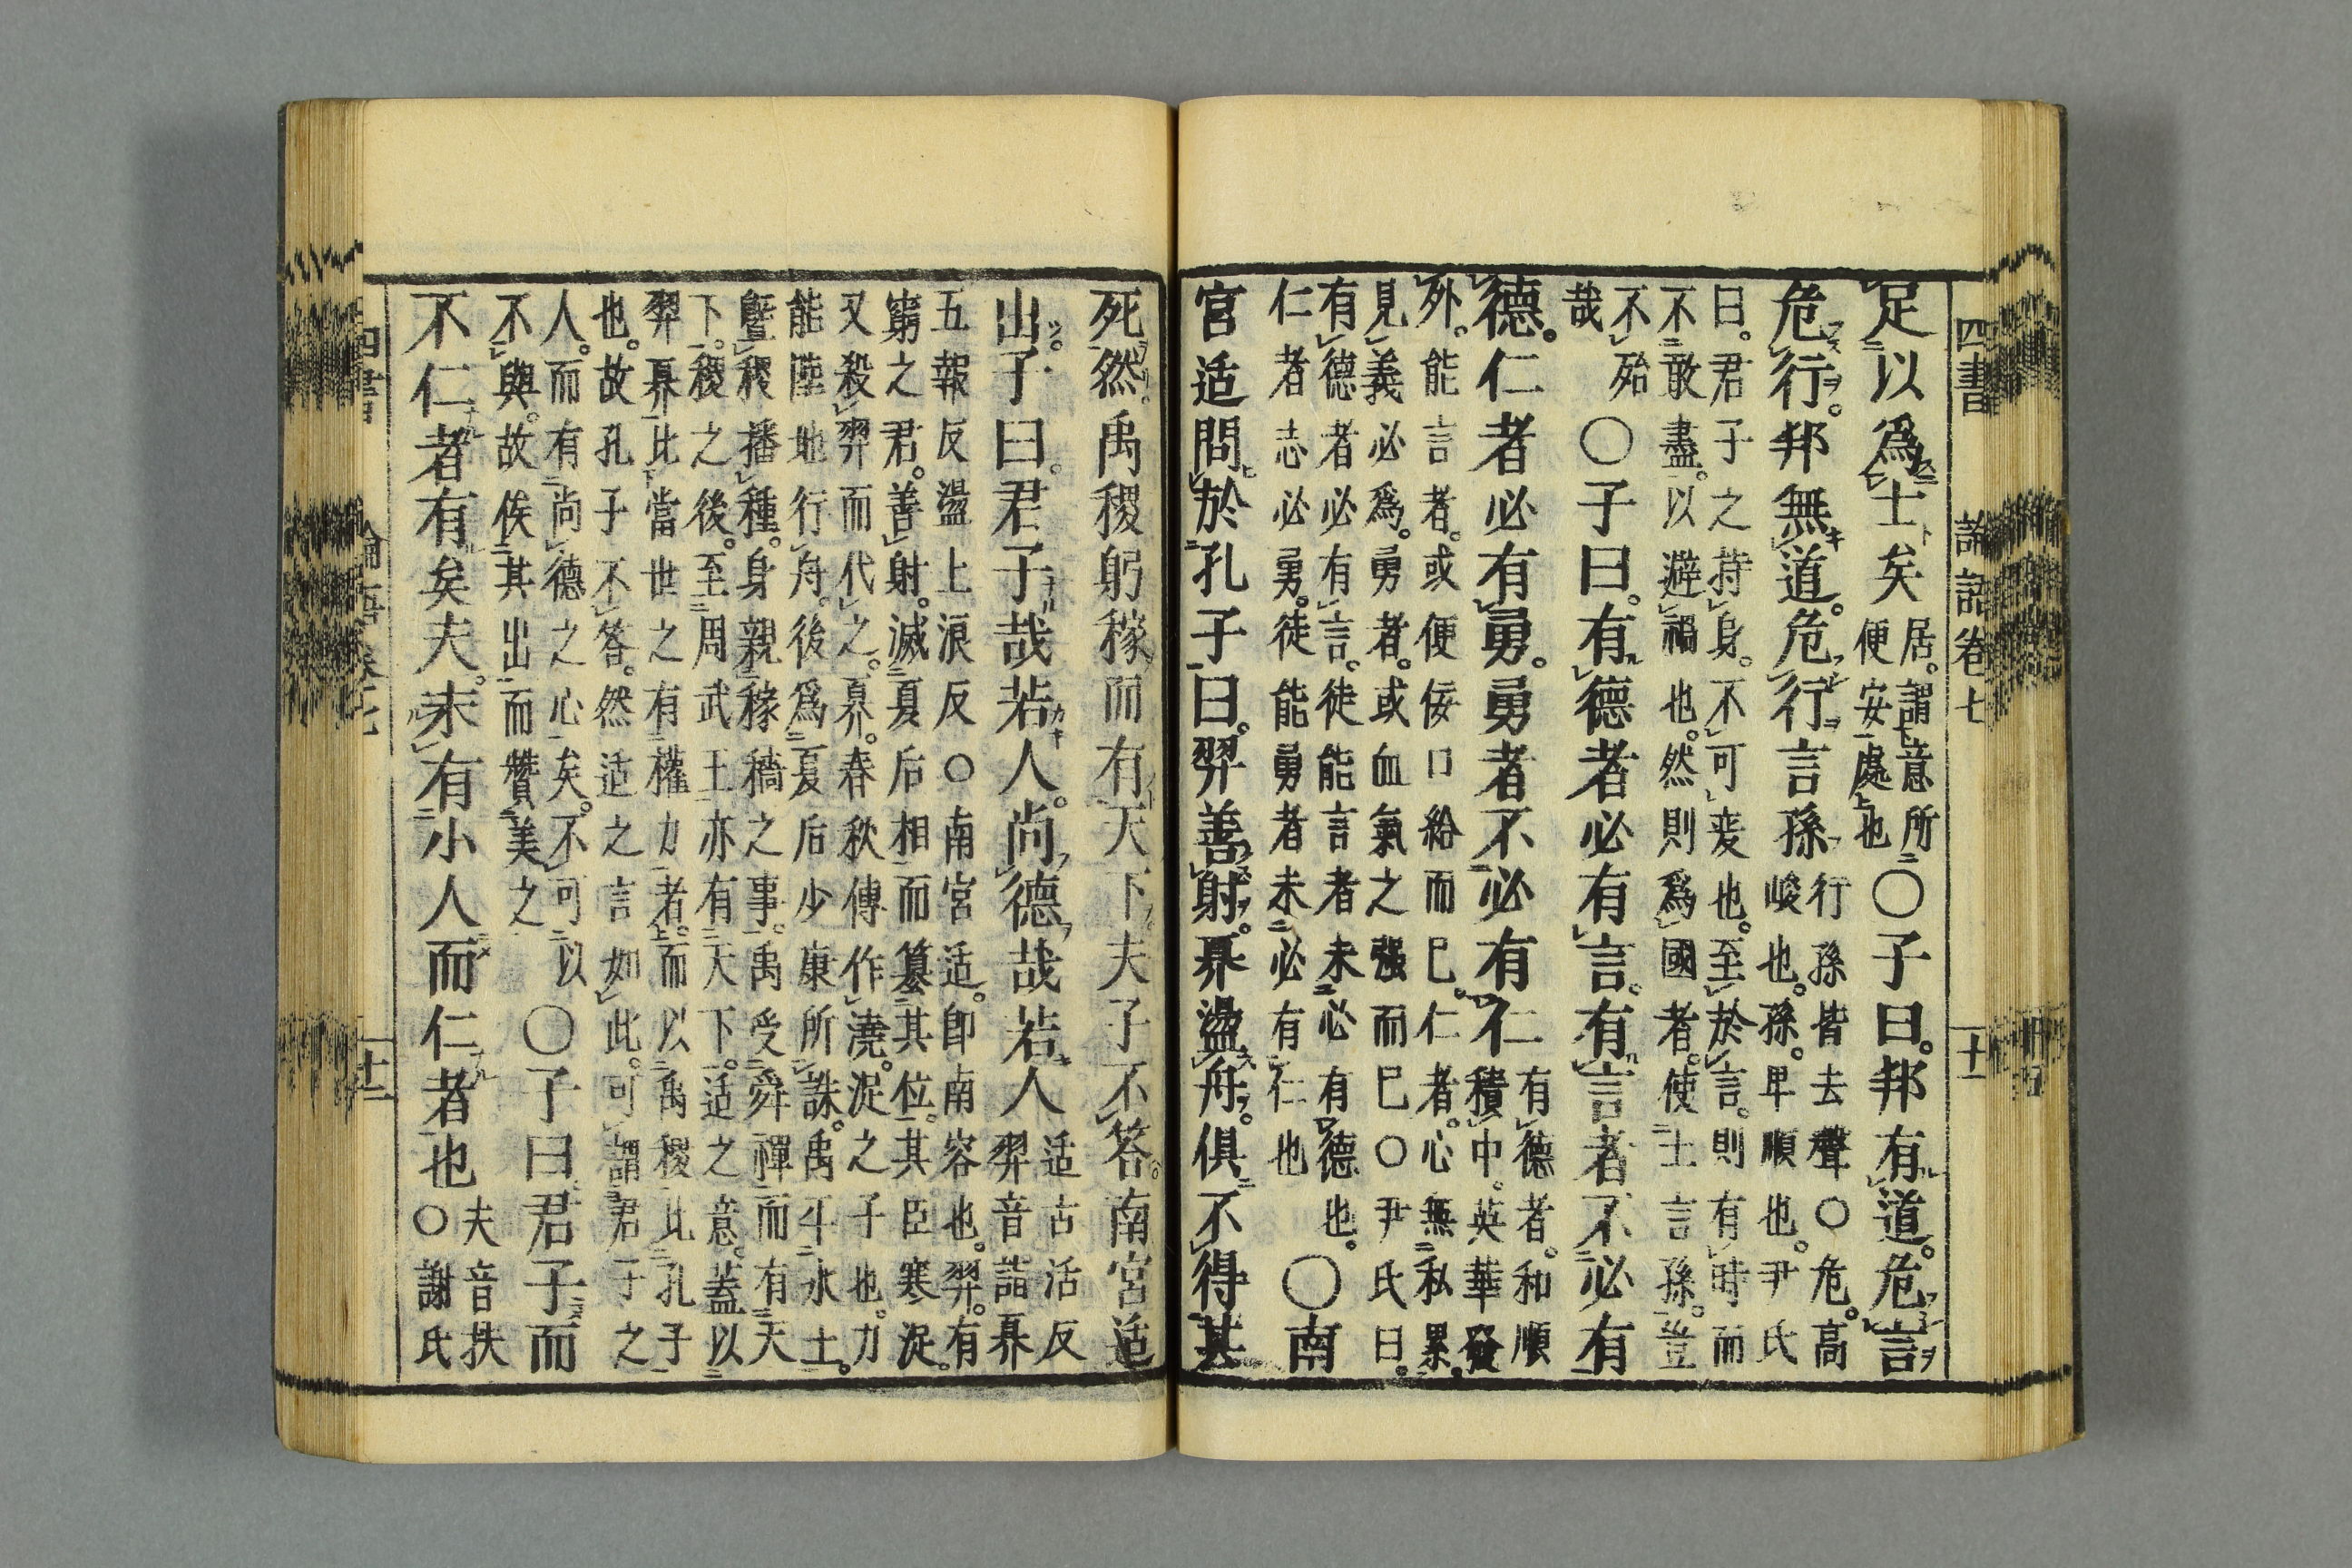 四書 論語卷七 十一
足以爲士矣居。謂意所便安處也〇子曰。邦有道。危言
危行。邦無道。危行言孫行孫皆去聲〇危。高峻也。孫。卑順也。尹氏
曰。君子之持身。不可変也。至於言。則有時而
不敢盡。以避禍也。然則爲國者。使士言孫。豈
不殆
哉
〇子曰。有德者必有言。有言者不必有
德。仁者必有勇。勇者不必有仁有德者。和順積中。英華發
外。能言者。或便佞口給而已。仁者。心無私累。
見義必爲。勇者。或血氣之强而已〇尹氏曰。
有德者必有言。徒能言者未必有德也。
仁者志必勇。徒能勇者未必有仁也
〇南
宮适問於孔子曰。羿善射。奡盪舟。俱不得其
死然。禹稷躬稼而有天下。夫子不答。南宮适
出。子曰。君子哉若人。尚德哉若人适古活反羿音詣奡
五報反盪上浪反〇南宮适。即南容也。羿。有
窮之君。善射。滅夏后相而簒其位。其臣寒浞。
又殺羿而代之。奡。春秋傳作澆。浞之子也。力
能陸地行舟。後爲夏后少康所誅。禹平水土。
曁稷播種。身親稼穡之事。禹受舜禪而有天
下。稷之後。至周武王亦有天下。适之意。蓋以
羿奡比當世之有權力者。而以禹稷比孔子
也。故孔子不答。然适之言如此。可謂君子之
人。而有尚德之心矣。不可以
不與。故俟其出而贊美之
〇子曰君子而
不仁者有矣夫。未有小人而仁者也夫音扶〇謝氏
四書 論語卷七 十二